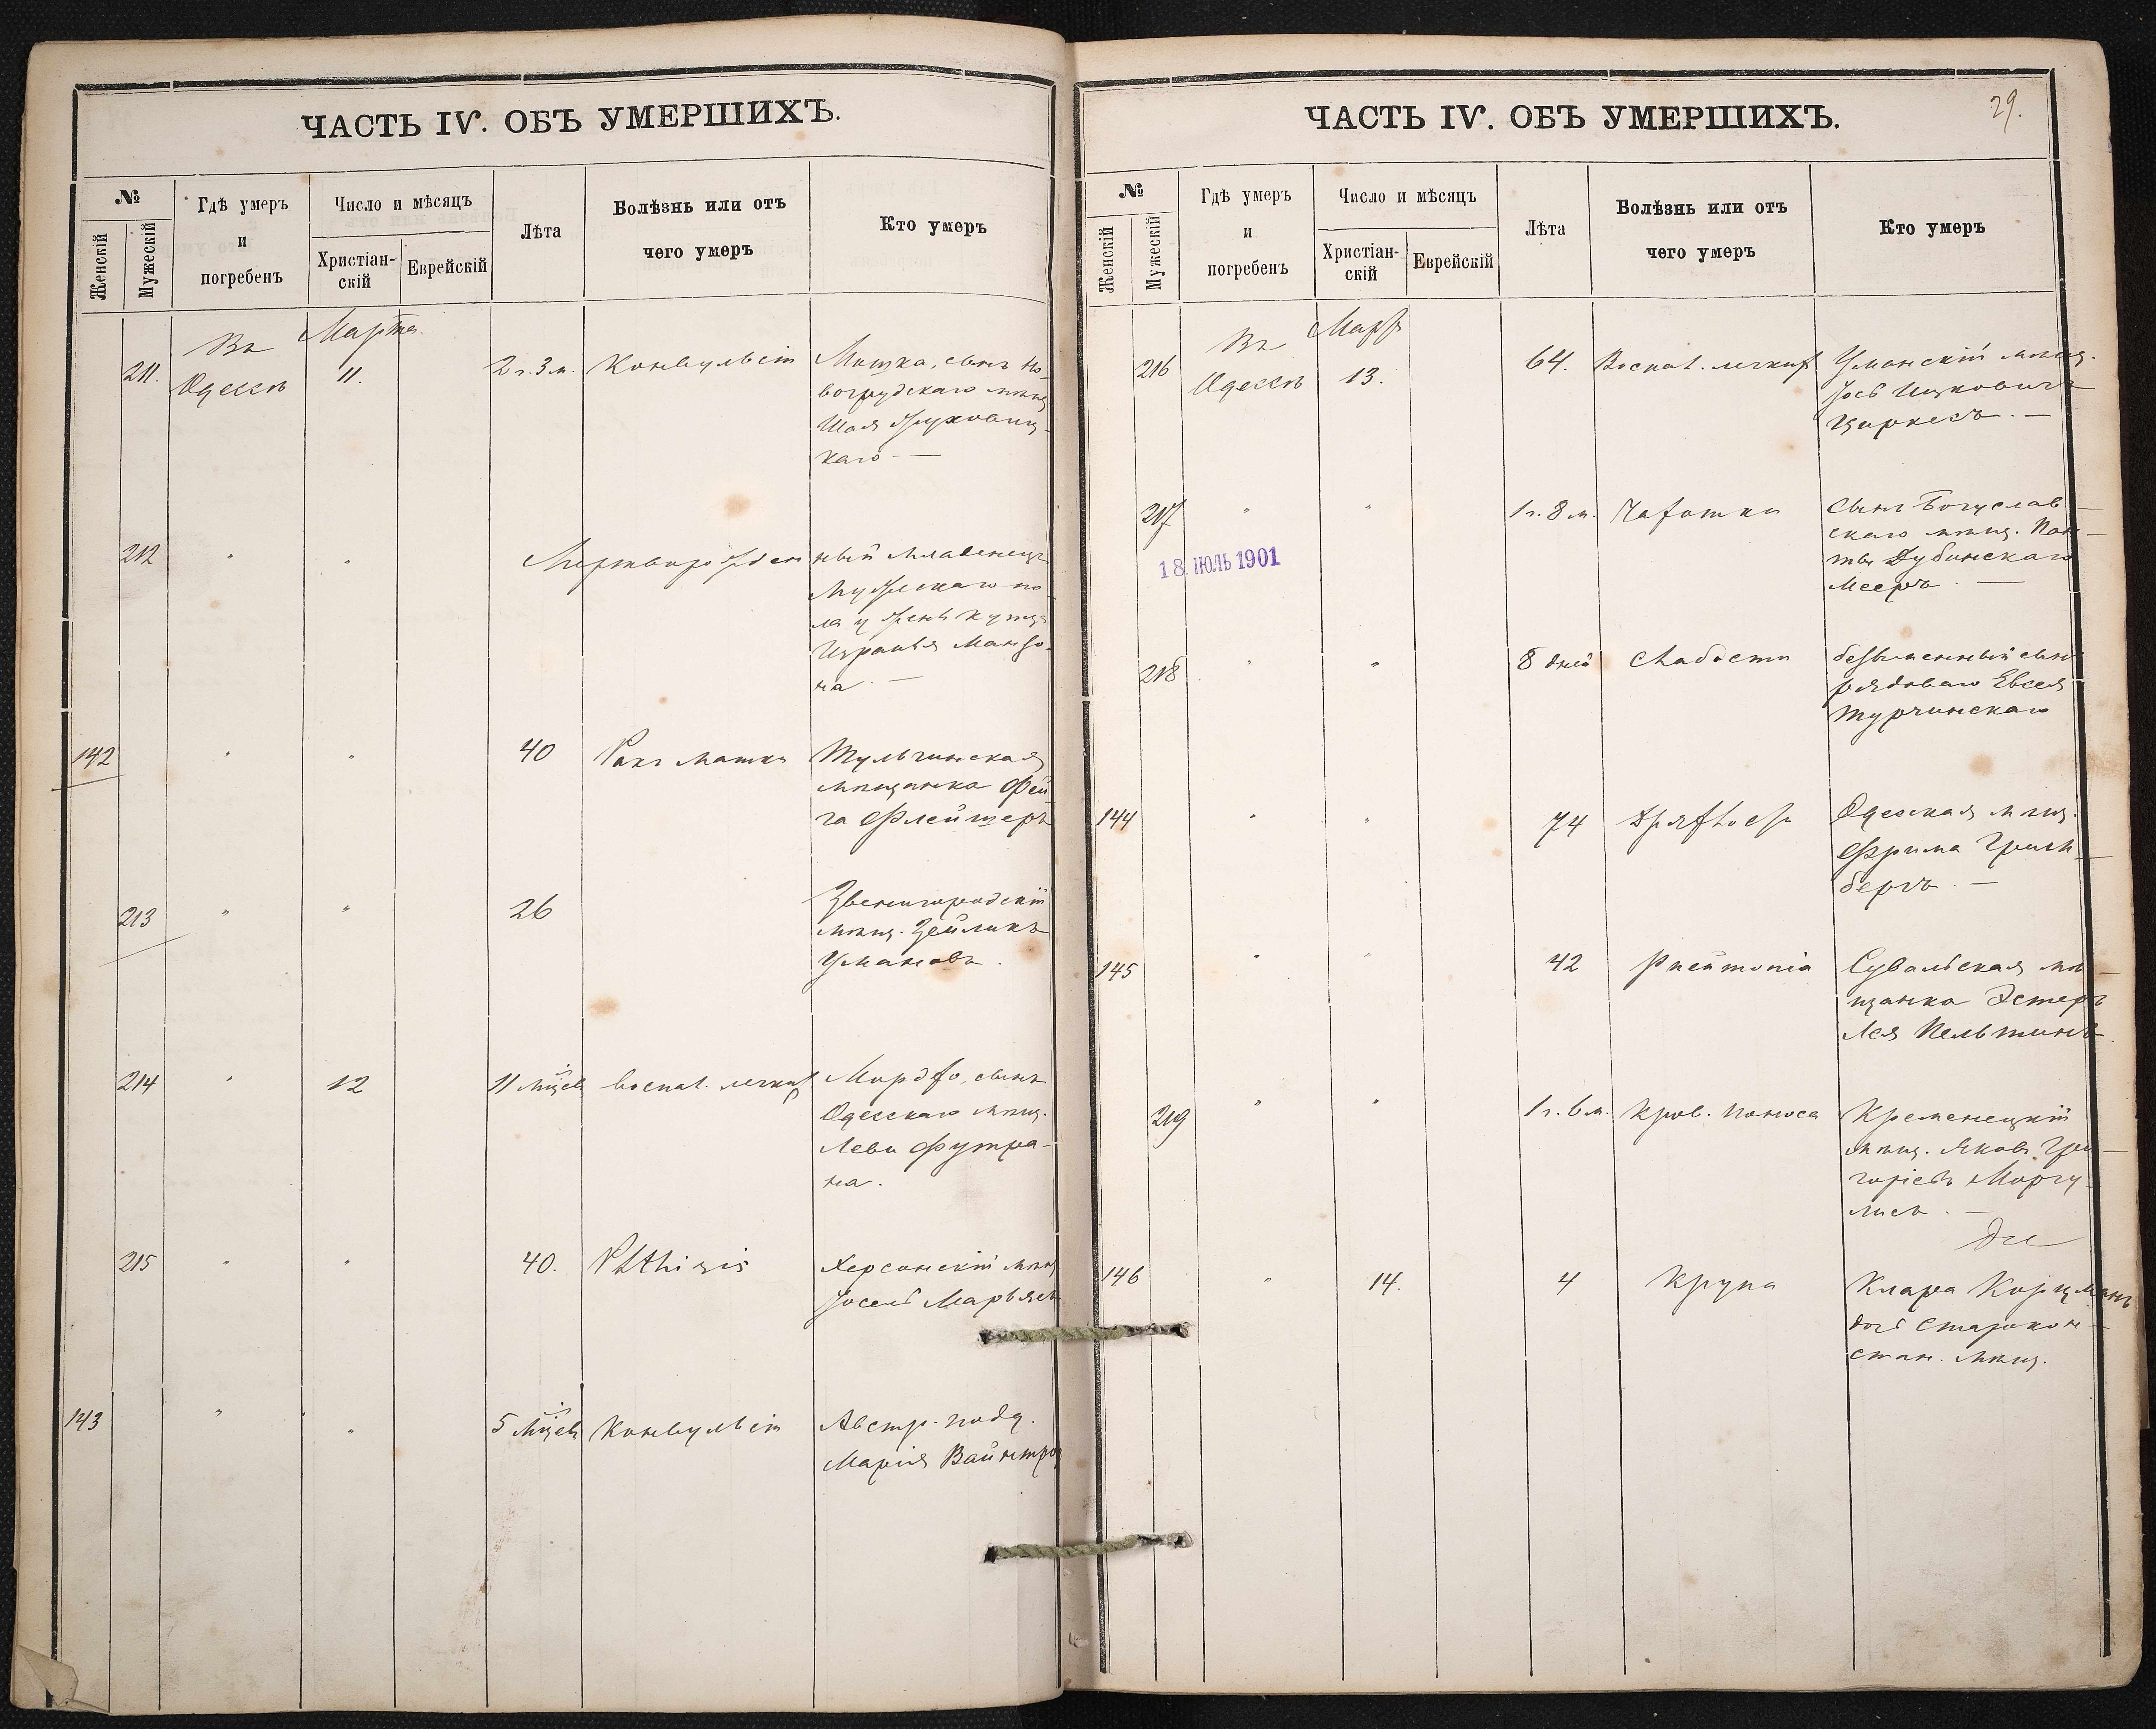 ЧАСТЬ IV. ОБЪ УМЕРШИХЪ.
№
Женскій
Мужескій
Гдѣ умеръ
и
погребенъ
Число и мѣсяцъ
Христіан-
скій
Еврейскій
Лѣта
Болѣзнь или отъ
чего умеръ
Кто умеръ
Въ Марта
211. Одессѣ 11. 2 г. 3 м. Конвульсіи Мошка, сынъ Но-
вогрудскаго мѣщ
Шая
каго —
212 " " Мертворожденный младенецъ
мужескаго по-
ла у жены купца
Израиля Манзо-
на —
142 " " 40 Ракъ матки Тульчинская
мѣщанка Фей-
га Флейшеръ
213 " " 26 Звенигородскій
мѣщ. Зейликъ
Умановъ.
214 " 12 11 мѣсяц воспал. легкихъ Мордко, сынъ
Одесскаго мѣщ.
Леви Футра-
на.
215 " " 40. Phthisis Херсонскій мѣщ
Іосель Марьясъ
143 " " 5 мѣсяц Конвульсіи Австр. подд.
Марія Вайнтро
ЧАСТЬ IV. ОБЪ УМЕРШИХЪ.
29.
№
Женскій
Мужескій
Гдѣ умеръ
и
погребенъ
Число и мѣсяцъ
Христіан-
скій
Еврейскій
Лѣта
Болѣзнь или отъ
чего умеръ
Кто умеръ
Въ Март
216 Одессѣ 13. 64. Воспал. легкихъ Уманскій мѣщ.
Іось Ицковичъ
Циркесъ. —
217 " " 1 г. 8 м. Чахотки Сынъ Богуслав-
скаго мѣщ. Пан-
ты Дубинскаго
Мееръ. —
18 ІЮЛЬ 1901
218 " " 8 дней Слабости безъименный сынъ
рядоваго Евсея
Турчинскаго
144 " " 74 Дряхлость Одесская мѣщ.
Фрима Грин-
бергъ. —
145 " " 42 Pneumonia Сувальская мѣ-
щанка Эстеръ
Лея Пельтинъ.
219 " " 1 г. 6 м. Кров. поноса Кременецкій
мѣщ. Яковъ Гри-
горіевъ Моргу-
лисъ. —
146 " 14. 4 Крупа Клара Корцманъ
дочь Старокон-
стан. мѣщ.